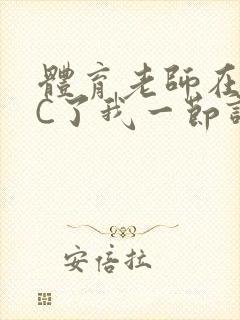 體育老師在
C了我一節
安倍拉